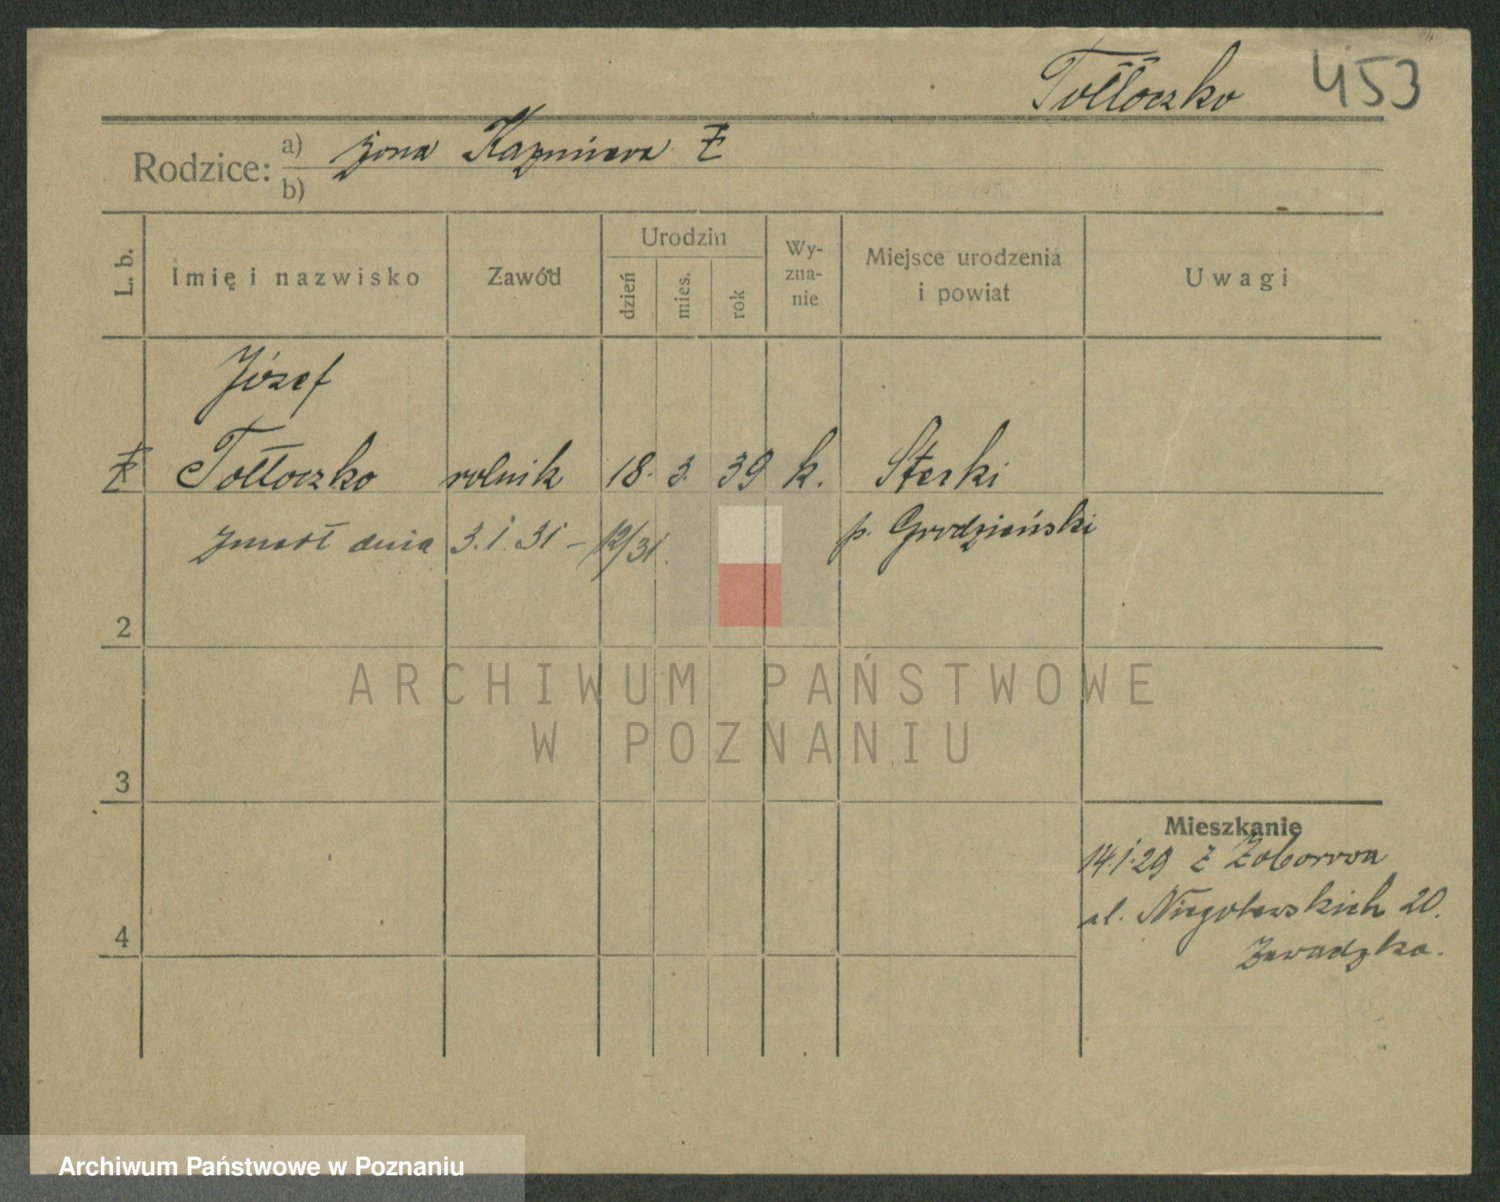 Tołłoczko 453
Rodzice: a) żona Kazimiera Ż
b)
L. b. Imię i nazwisko Zawód Urodzin dzień mies. rok Wy-zna-nie Miejsce urodzenia i powiat Uwagi
Józef
Tołłoczko rolnik 18. 3. 39 k. Sterki
zmarł dnia 3.1.31 – 12/31. p. Grodzieński
2
3
Mieszkanie
14.1.29 z Zaborowa
ul. Niegolewskich 20.
4
Zawadzka.
ARCHIWUM PAŃSTWOWE
W POZNANIU
Archiwum Państwowe w Poznaniu